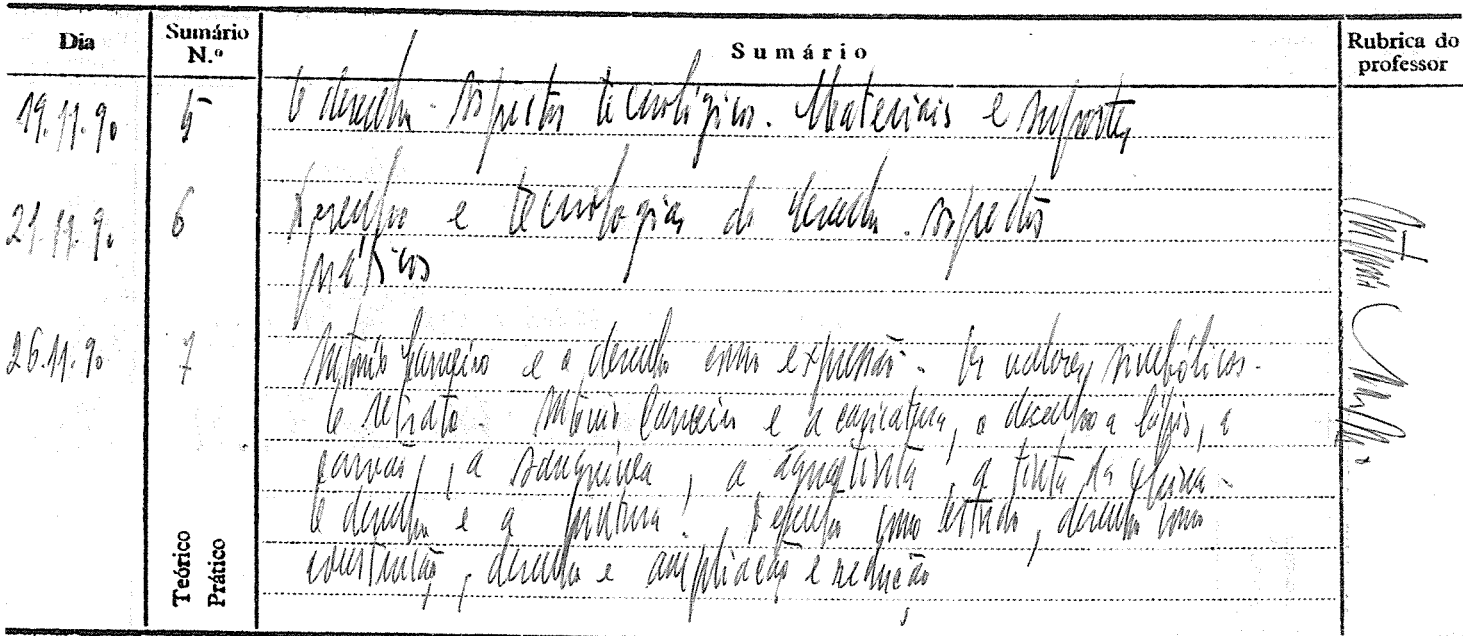 Dia
Sumário N.º
Sumário
Rubrica do professor
19.11.90
5
O desenho - Aspectos tecnológicos. Materiais e suportes
21.11.90
6
Desenho e tecnologias do desenho. Aspectos
práticos
26.11.90
7
António Carneiro e o desenho como expressão. Os valores simbólicos.
O retrato. António Carneiro e a caricatura, o desenho a lápis, a
carvão, a sanguínea, a águatinta, a tinta da china.
O desenho e a pintura. Desenho como estudo, desenho como
construção, desenho e ampliação e redução
Teórico
Prático